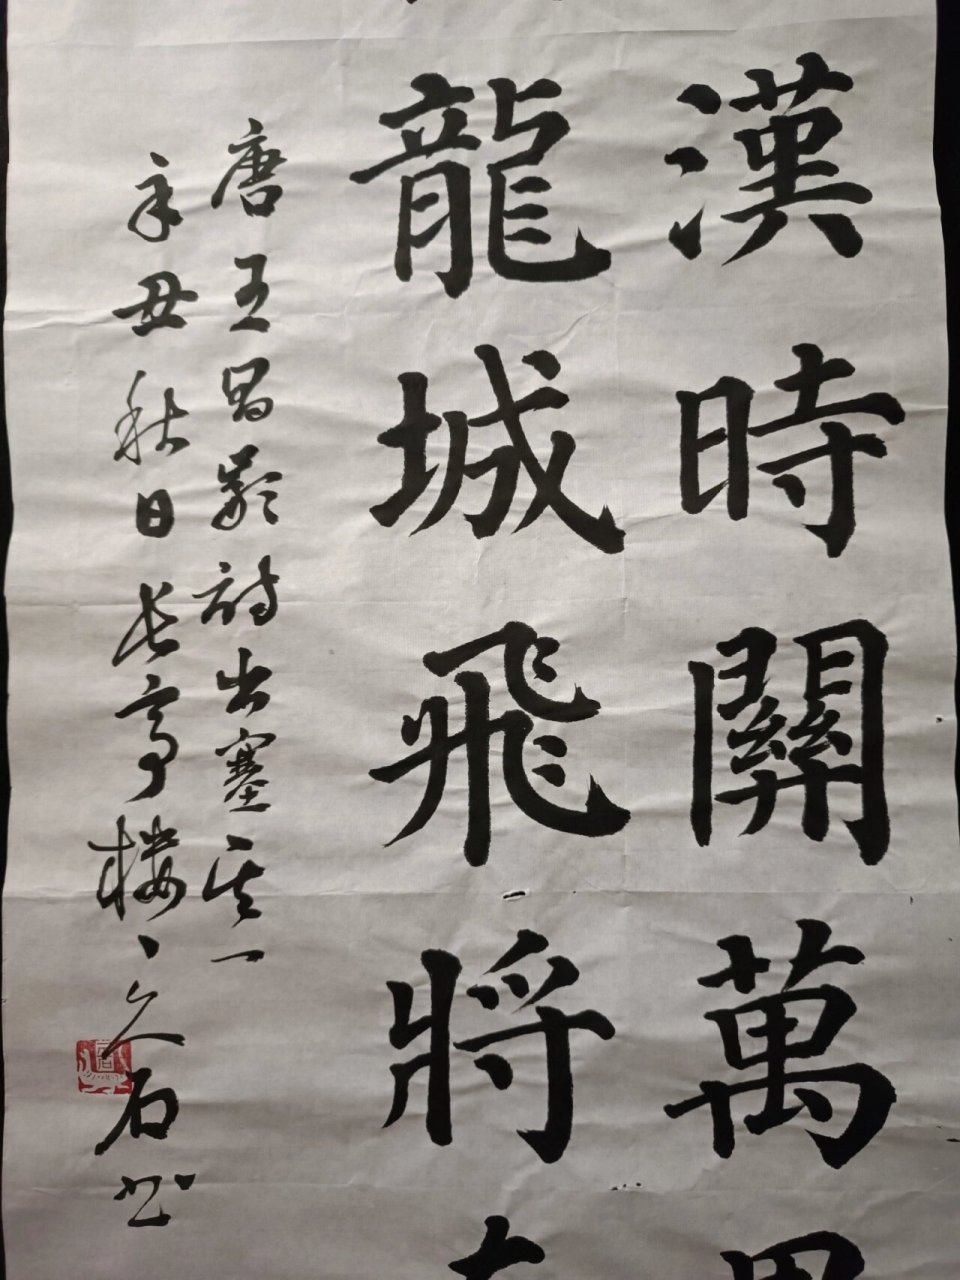 漢時關萬里
龍城飛將在
唐王昌齡詩出塞其一
辛丑秋日長亭樓主久石书